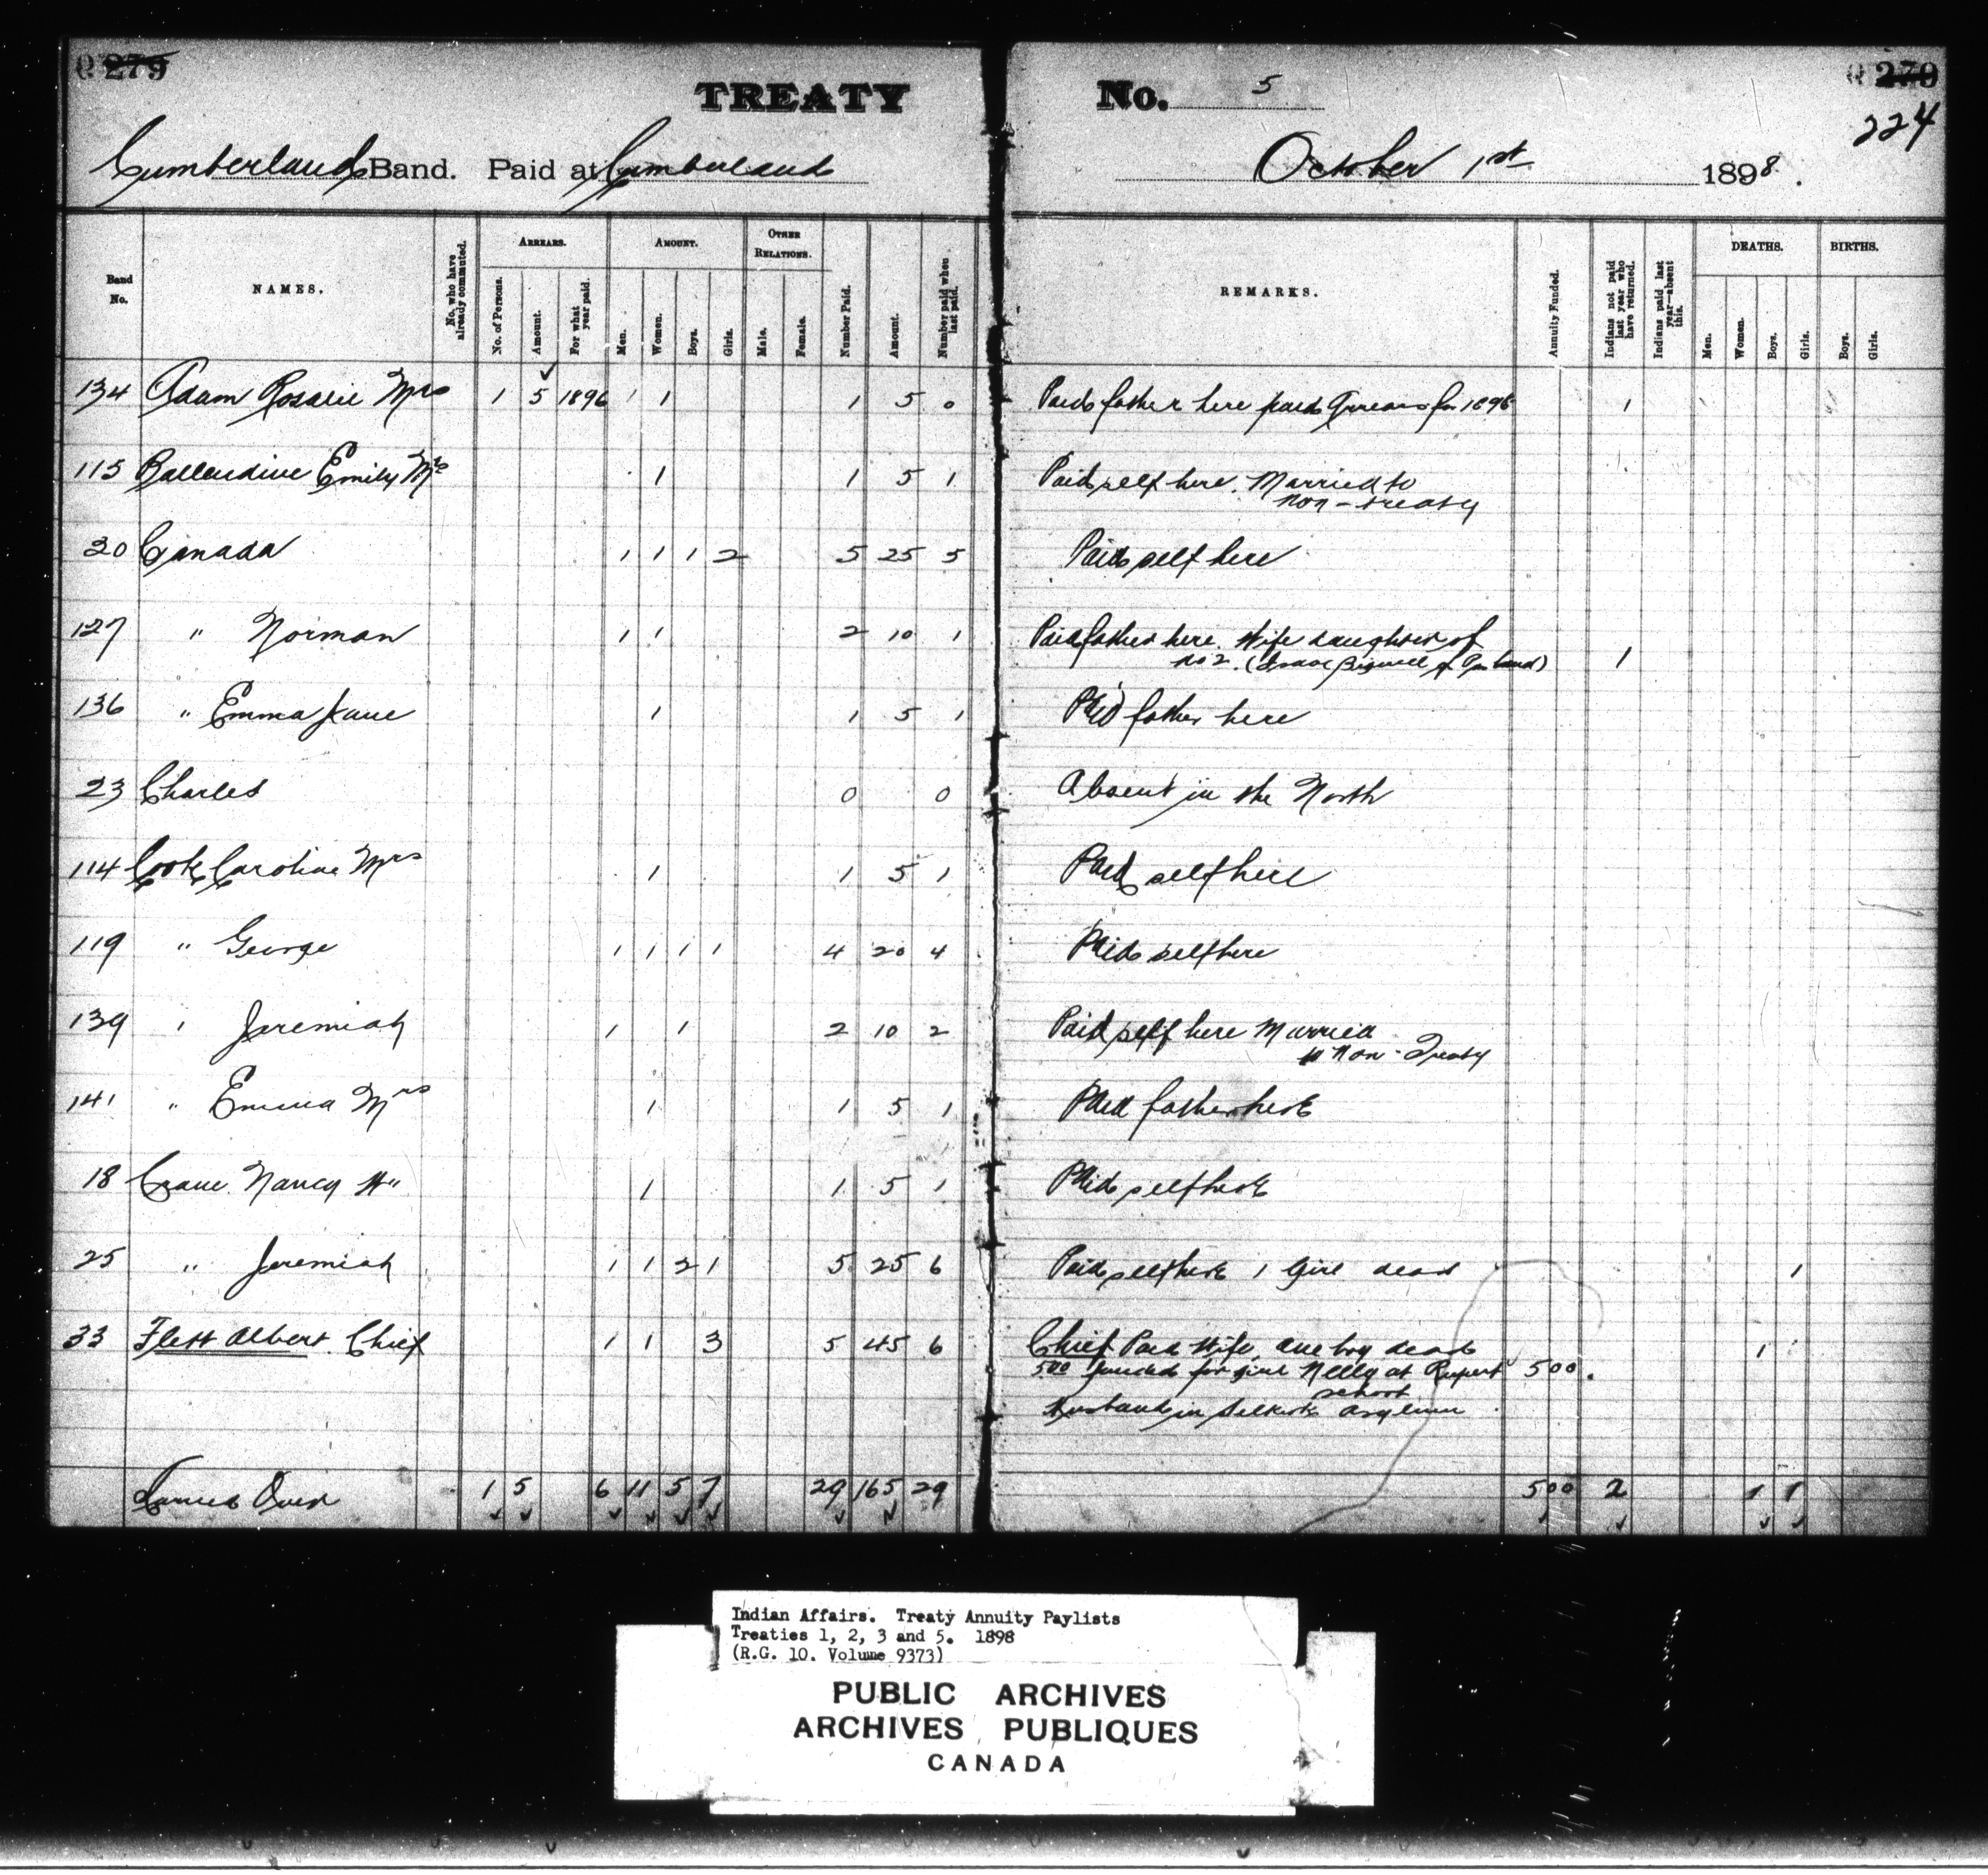 279
279
224
TREATY No. 5
Cumberland Band. Paid at Cumberland October 1st 1898.
Band No. NAMES. No. who have already commuted. ARREARS. No. of Persons. Amount. For what year paid. AMOUNT. Men. Women. Boys. Girls. OTHER RELATIONS. Male. Female. Number Paid. Amount. Number paid when last paid. REMARKS. Annuity Funded. Indians not paid last year who have returned. Indians paid last year—absent this. DEATHS. Men. Women. Boys. Girls. BIRTHS. Boys. Girls.
134 Adam Rosalie Mrs 1 5 1896 1 1 5 0 Paid father here paid Arrears for 1896 1
115 Ballendine Emily Mrs 1 1 5 1 Paid self here. Married to
non-treaty
20 Canada 1 1 1 2 5 25 5 Paid self here
127 " Norman 1 1 2 10 1 Paid father here. Wife daughter of
No 2. (Isaac Bignell of band) 1
136 " Emma Jane 1 1 5 1 Paid father here
23 Charles 0 0 Absent in the North
114 Cook Caroline Mrs 1 1 5 1 Paid self here
119 " George 1 1 1 1 4 20 4 Paid self here
139 " Jeremiah 1 1 2 10 2 Paid self here Married
to Non-Treaty
141 " Emma Mrs 1 1 5 1 Paid father here
18 Crane Nancy W" 1 1 5 1 Paid self here
25 " Jeremiah 1 1 2 1 5 25 6 Paid self here 1 Girl dead 1
33 Flett Albert Chief 1 1 3 5 45 6 Chief Paid Wife, one boy dead 1
5.00 funded for girl Nelly at Rupert 500.
school
Husband in Selkirk Asylum
Carried Over 1 5 6 11 5 7 29 165 29 500 2 1 1
Indian Affairs. Treaty Annuity Paylists
Treaties 1, 2, 3 and 5. 1898
(R.G. 10. Volume 9373)
PUBLIC ARCHIVES
ARCHIVES PUBLIQUES
CANADA